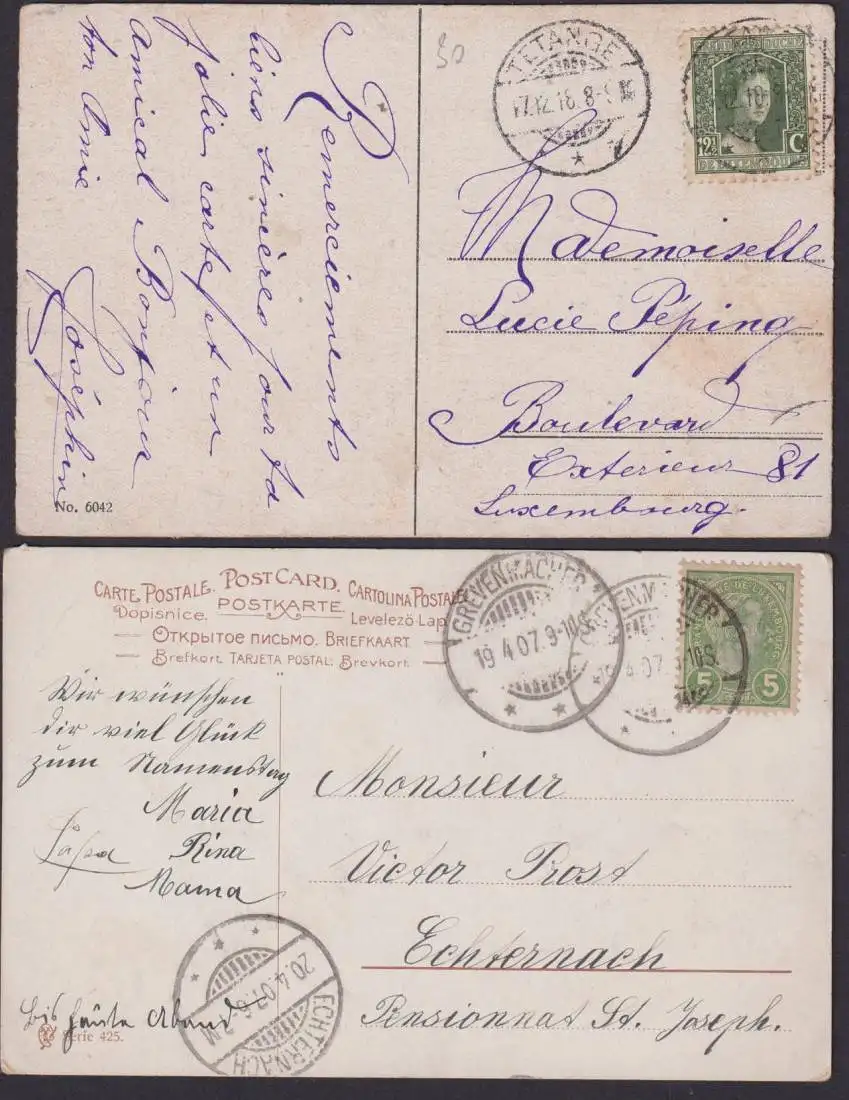 30
TETANGE
17.12.18. 8-9
12½ C.
Remerciements
biens sincères pour ta
jolie carte, et un
amical Bonjour
ton Amie
Joséphine
Mademoiselle
Lucie Péping
Boulevard
Exterieur 81
Luxembourg.
No. 6042
CARTE POSTALE. POST CARD. CARTOLINA POSTALE
Dopisnice. POSTKARTE. Levelező-Lap
ОТКРЫТОЕ ПИСЬМО. BRIEFKAART
Brefkort. TARJETA POSTAL. Brevkort.
GREVENMACHER
19.4.07. 9-10S.
GREVENMACHER
5 5
Wir wünschen
dir viel Glück
zum Namenstag
Maria
Papa Rina
Mama
Bis heute Abend
Serie 425.
Monsieur
Victor Prost
Echternach
Pensionnat St. Joseph.
20.4.07
ECHTERNACH